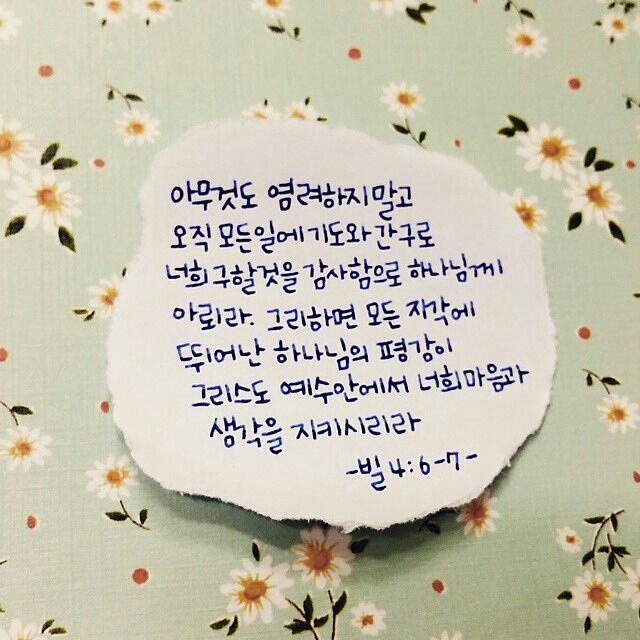 아무것도 염려하지말고
오직 모든일에 기도와 간구로
너희 구할것을 감사함으로 하나님께
아뢰라. 그리하면 모든 지각에
뛰어난 하나님의 평강이
그리스도 예수안에서 너희마음과
생각을 지키시리라
-빌 4:6-7-